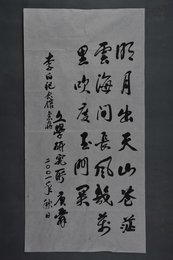 明月出天山蒼茫
雲海間長風幾萬
里吹度玉門關
李白
文學研究所
二〇〇一年秋日